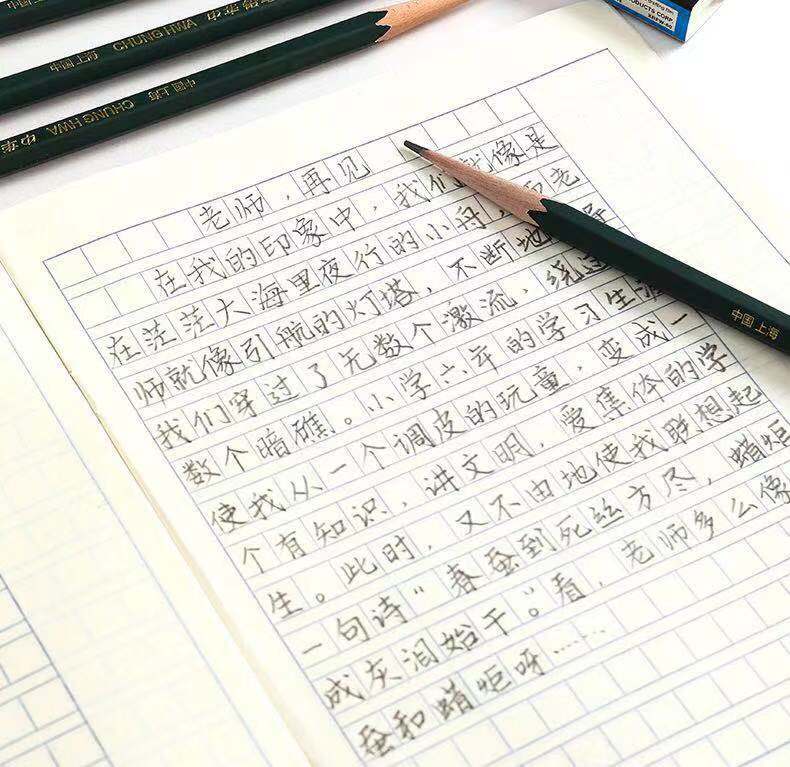 中国上海
中国上海 CHUNG HWA 中华
中华 CHUNG HWA 中国上海
ODUCTS CORP
老师，再见
在我的印象中，我们就像是
在茫茫大海里夜行的小舟，老
师就像引航的灯塔，不断地
我们穿过了无数个激流，绕过
数个暗礁。小学六年的学习生涯
使我从一个调皮的玩童，变成一
个有知识、讲文明、爱集体的学
生。此时，又不由地使我联想起
一句诗“春蚕到死丝方尽，蜡炬
成灰泪始干。”看，老师多么像
蚕和蜡炬呀……
中国上海